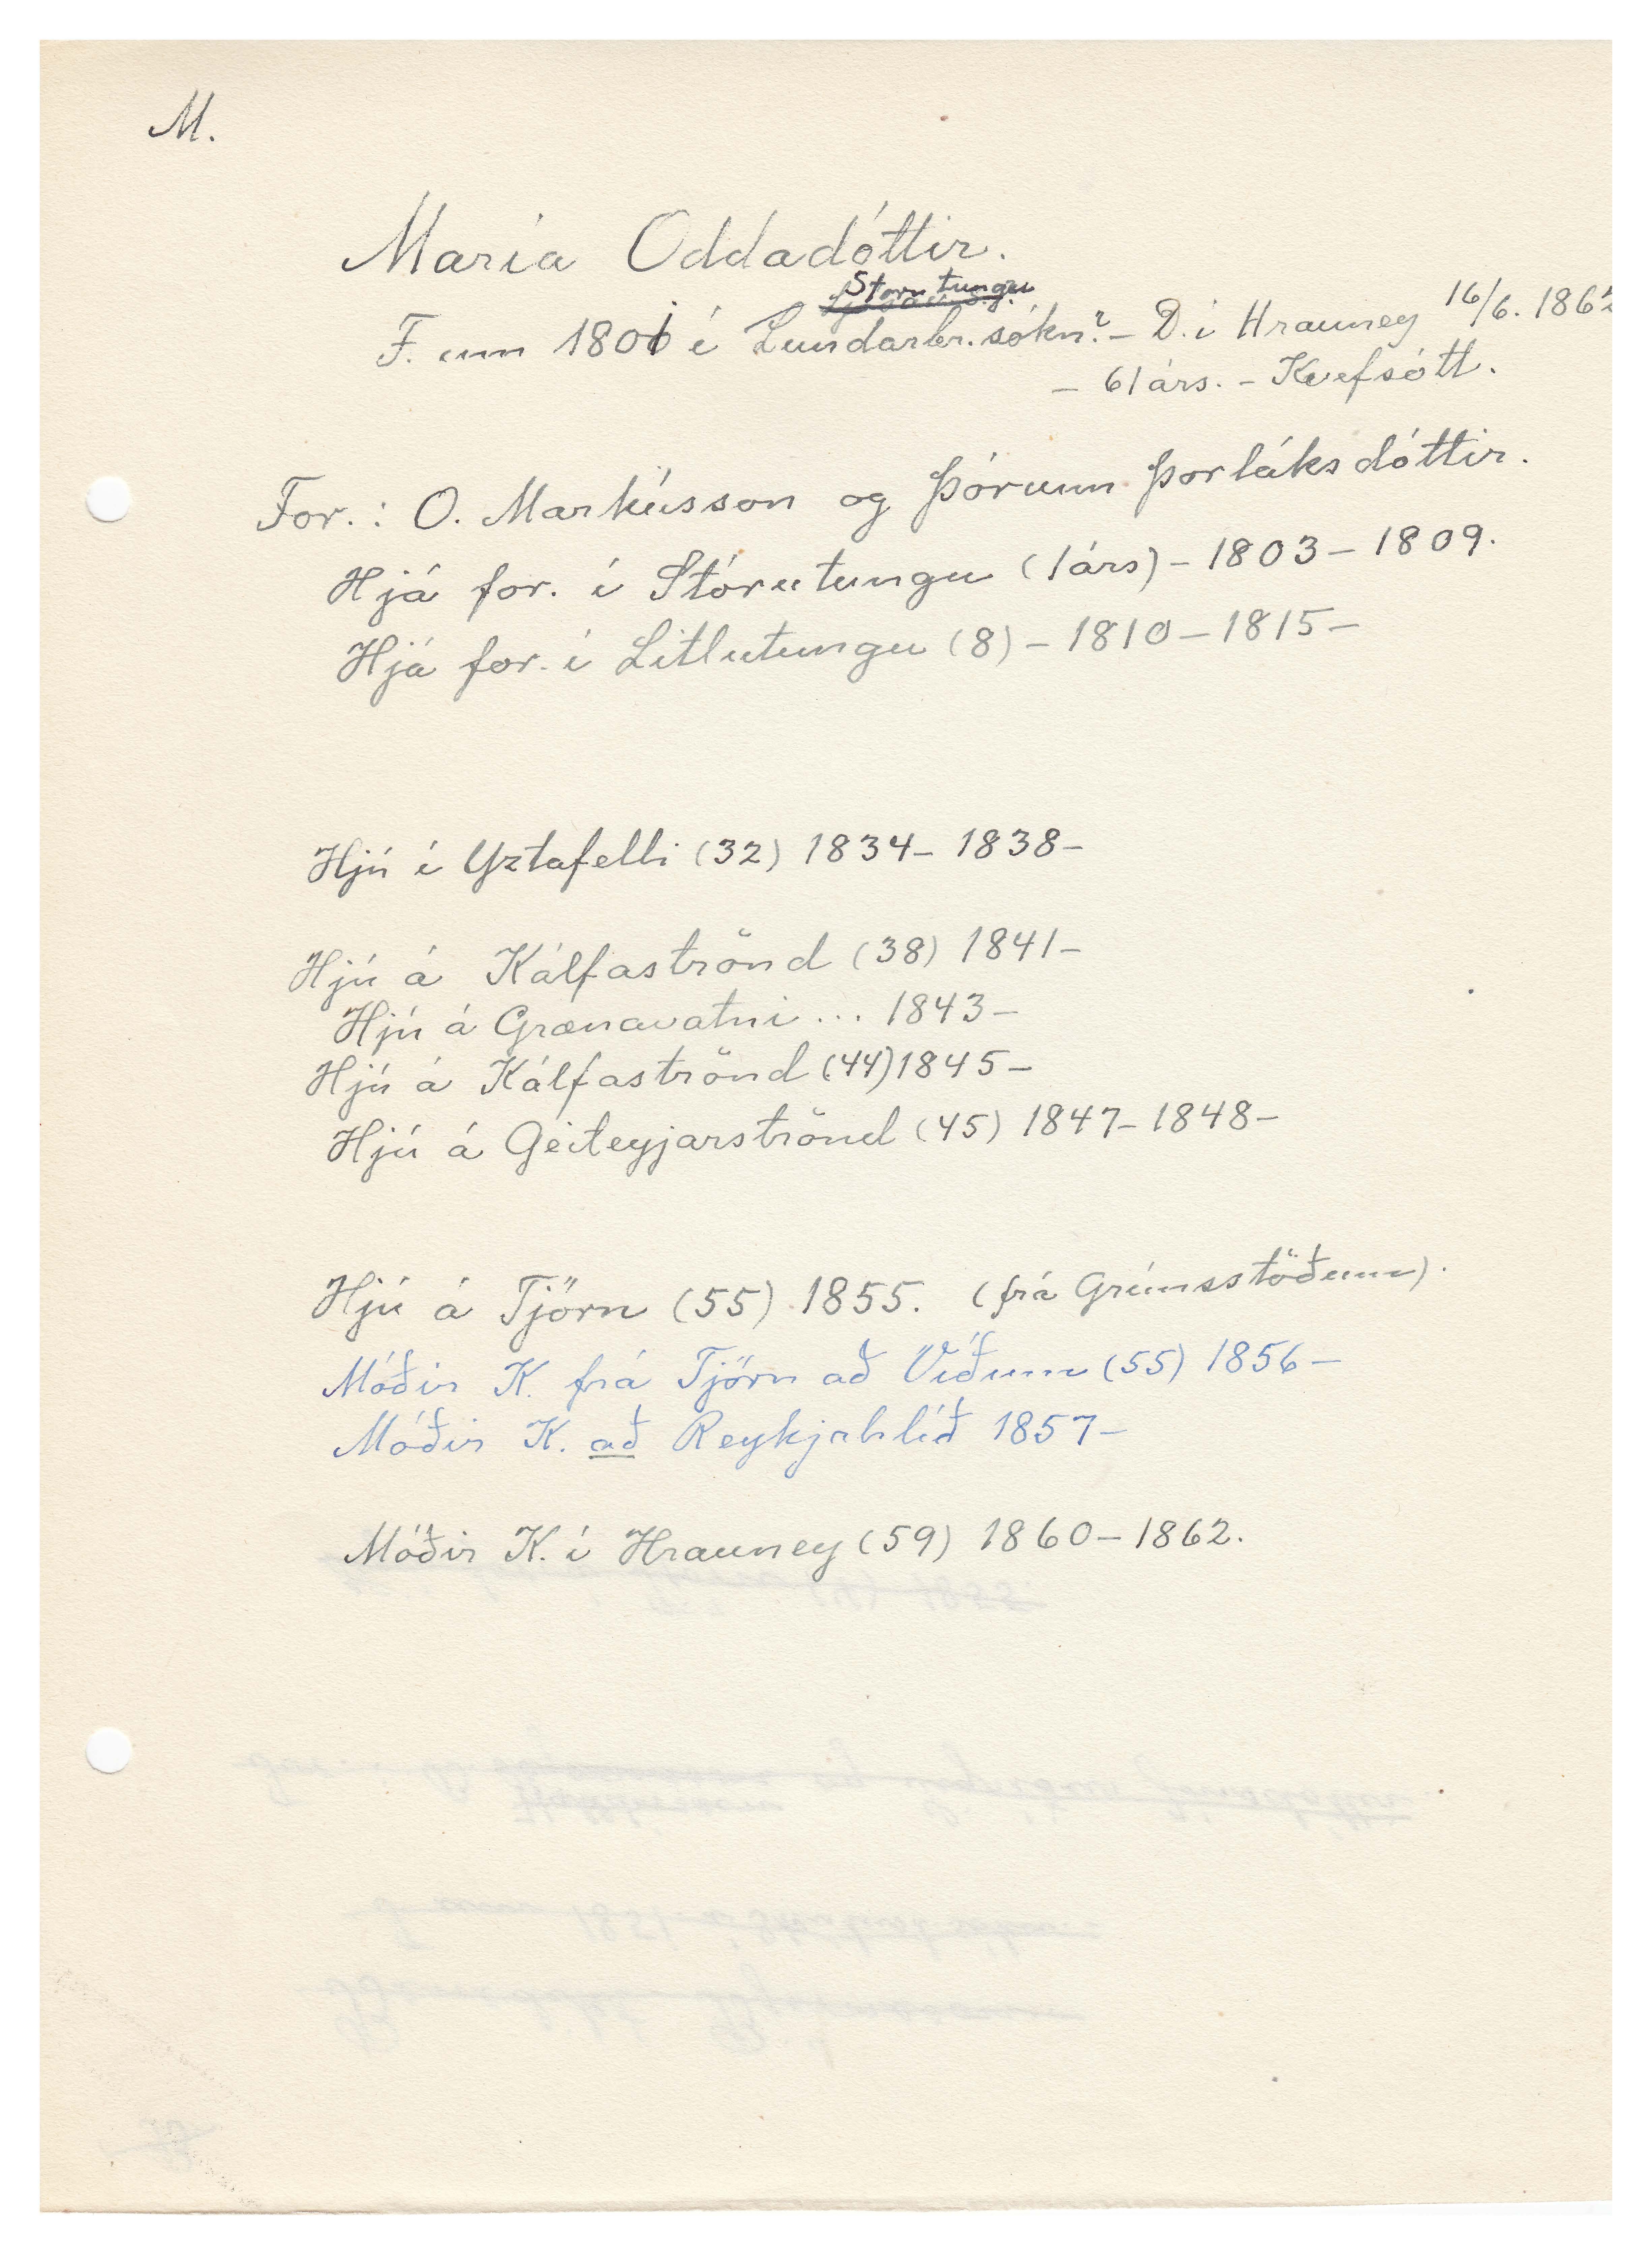 M.
María Oddadóttir.
Stóru tungu
F. um 1801 í Lundarbr.sókn? - D. í Hrauney 16/6. 1862
- 61 árs. - Kvefsótt.
For.: O. Markússon og Þórunn Þorláksdóttir.
Hjá for. í Stórutungu (1árs) - 1803 - 1809.
Hjá for. í Litlutungu (8) - 1810 - 1815 -
Hjú í Yztafelli (32) 1834 - 1838 -
Hjú á Kálfaströnd (38) 1841 -
Hjú á Grænavatni ... 1843 -
Hjú á Kálfaströnd (44) 1845 -
Hjú á Geiteyjarströnd (45) 1847 - 1848 -
Hjú á Tjörn (55) 1855. (frá Grímsstöðum).
Móðir K. frá Tjörn að Víðum (55) 1856 -
Móðir K. að Reykjahlíð 1857 -
Móðir K. í Hrauney (59) 1860 - 1862.